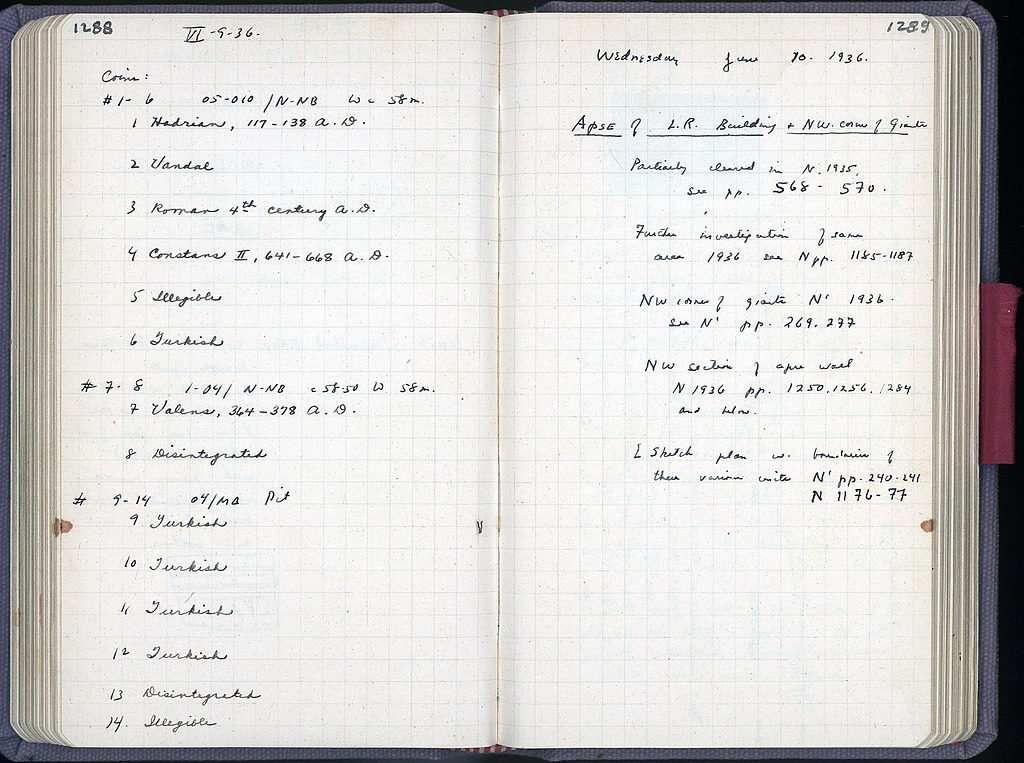 1288
VI-9-36.
Coins:
#1-6 05-010/N-NB W c 58m.
1 Hadrian, 117-138 A.D.
2 Vandal
3 Roman 4th century A.D.
4 Constans II, 641-668 A.D.
5 Illegible
6 Turkish
#7-8 1-04/N-NB c 58.50 W 58m.
7 Valens, 364-378 A.D.
8 Disintegrated
# 9-14 04/MB Pit
9 Turkish
10 Turkish
11 Turkish
12 Turkish
13 Disintegrated
14. Illegible
1289
Wednesday June 10. 1936.
Apse of L.R. Building + NW. corner of Giants
Partially cleared in N, 1935,
see pp. 568-570.
Further investigation of same
area 1936 see N pp. 1185-1187
NW corner of giants N' 1936.
see N' pp. 269, 277
NW section of apse wall
N 1936 pp. 1250, 1256, 1284
and below.
[ Sketch plan w. boundaries of
these various units N' pp. 240-241
N 1176-77